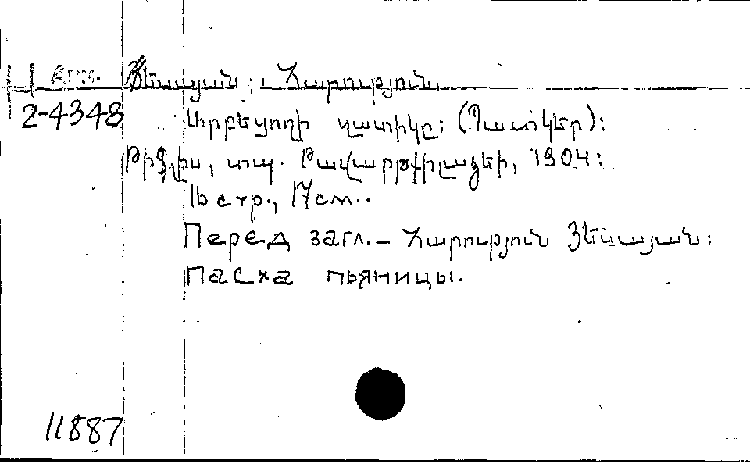 Յեսայան, Հարություն.
2-4348
Արբեցողի զատիկը: (Պատկեր):
Թիֆլիս, տպ. 1904:
16 стр., 17см..
Перед загл. – Հարություն Յեսայան:
Пасха пьяницы.
11887